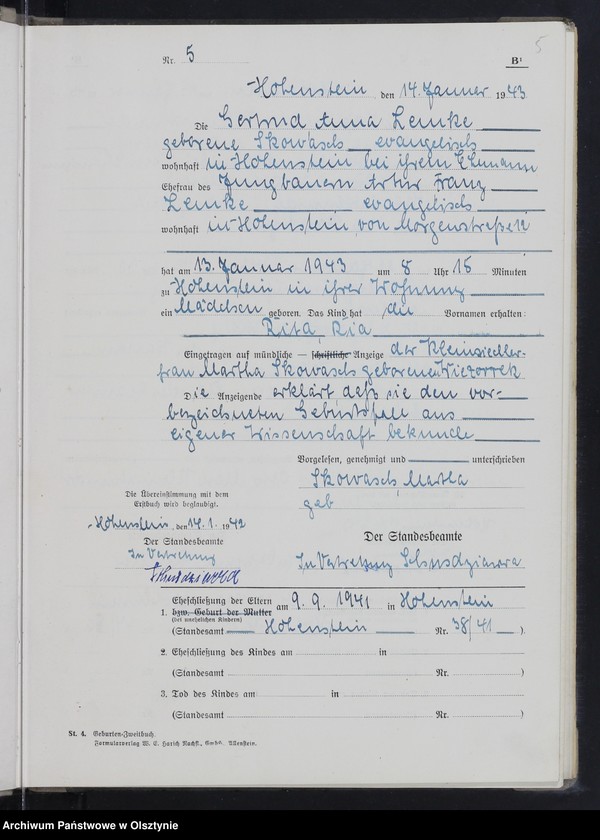 5
Nr. 5 B¹
Hohenstein, den 14. Januar 1943
Die Gertrud Anna Lemke
geborene Skowasch evangelisch
wohnhaft in Hohenstein bei ihrem Ehemann
Ehefrau des Jungbauern Artur Franz
Lemke evangelisch
wohnhaft in Hohenstein, von Morgenstraße 12
hat am 13. Januar 1943 um 8 Uhr 15 Minuten
zu Hohenstein in ihrer Wohnung
ein Mädchen geboren. Das Kind hat die Vornamen erhalten:
Rita, Ria
Eingetragen auf mündliche — schriftliche Anzeige der Kleinsiedler-
frau Martha Skowasch geborene Wiezorrek
Die Anzeigende erklärt daß sie den vor-
bezeichneten Geburtsfall aus
eigener Wissenschaft bekunde
Vorgelesen, genehmigt und unterschrieben
Skowasch, Martha
geb
Die Übereinstimmung mit dem
Erstbuch wird beglaubigt.
Hohenstein, den 14.1. 1942
Der Standesbeamte
In Vertretung
Der Standesbeamte
In Vertretung
Eheschließung der Eltern
1. bzw. Geburt der Mutter am 9. 9. 1941 in Hohenstein
(bei unehelichen Kindern)
(Standesamt Hohenstein Nr. 38/41 ).
2. Eheschließung des Kindes am in
(Standesamt Nr. )
3. Tod des Kindes am in
(Standesamt Nr. )
St. 4. Geburten-Zweitbuch.
Formularverlag W. E. Harich Nachfl., GmbH. Allenstein.
Archiwum Państwowe w Olsztynie